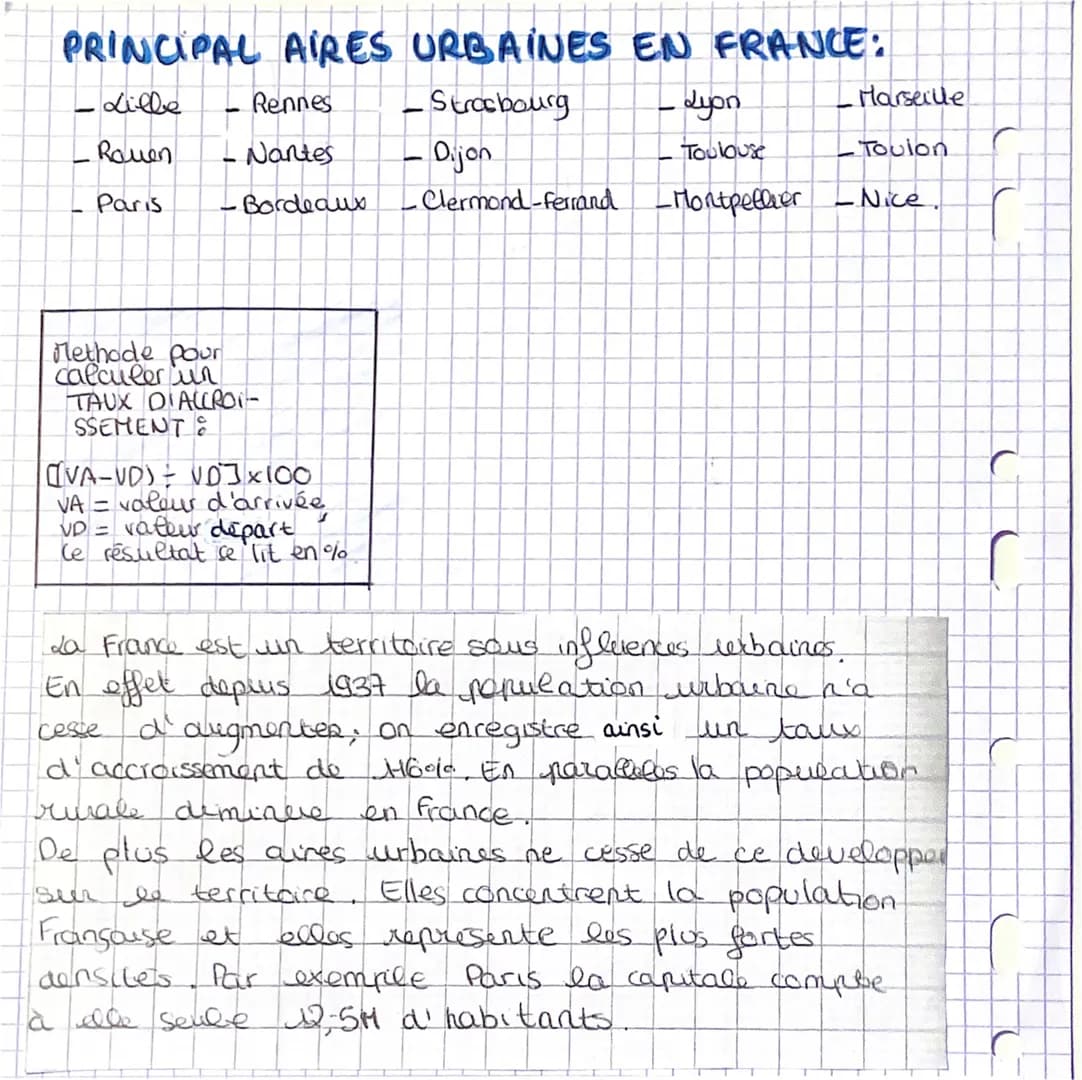 PRINCIPAL AIRES URBAINES EN FRANCE:
- Lille - Rennes - Strasbourg - Lyon - Marseille
- Rouen - Nantes - Dijon - Toulouse - Toulon
- Paris - Bordeaux - Clermond-Ferrand - Montpellier - Nice.
Methode pour
calculer un
TAUX D'ACCROI-
SSEMENT :
[(VA-VD) ÷ VD] x 100
VA = valeur d'arrivée
VD = valeur départ
Le résultat se lit en %
La France est un territoire sous influences urbaines.
En effet depuis 1937 la population urbaine n'a
cesse d'augmenter; on enregistre ainsi un taux
d'accroissement de 116%. En parallèles la population
rurale diminue en France.
De plus les aires urbaines ne cesse de ce developper
sur le territoire. Elles concentrent la population
Française et elles représente les plus fortes
densités. Par exemple Paris la capitale compte
à elle seule 12,5M d'habitants.